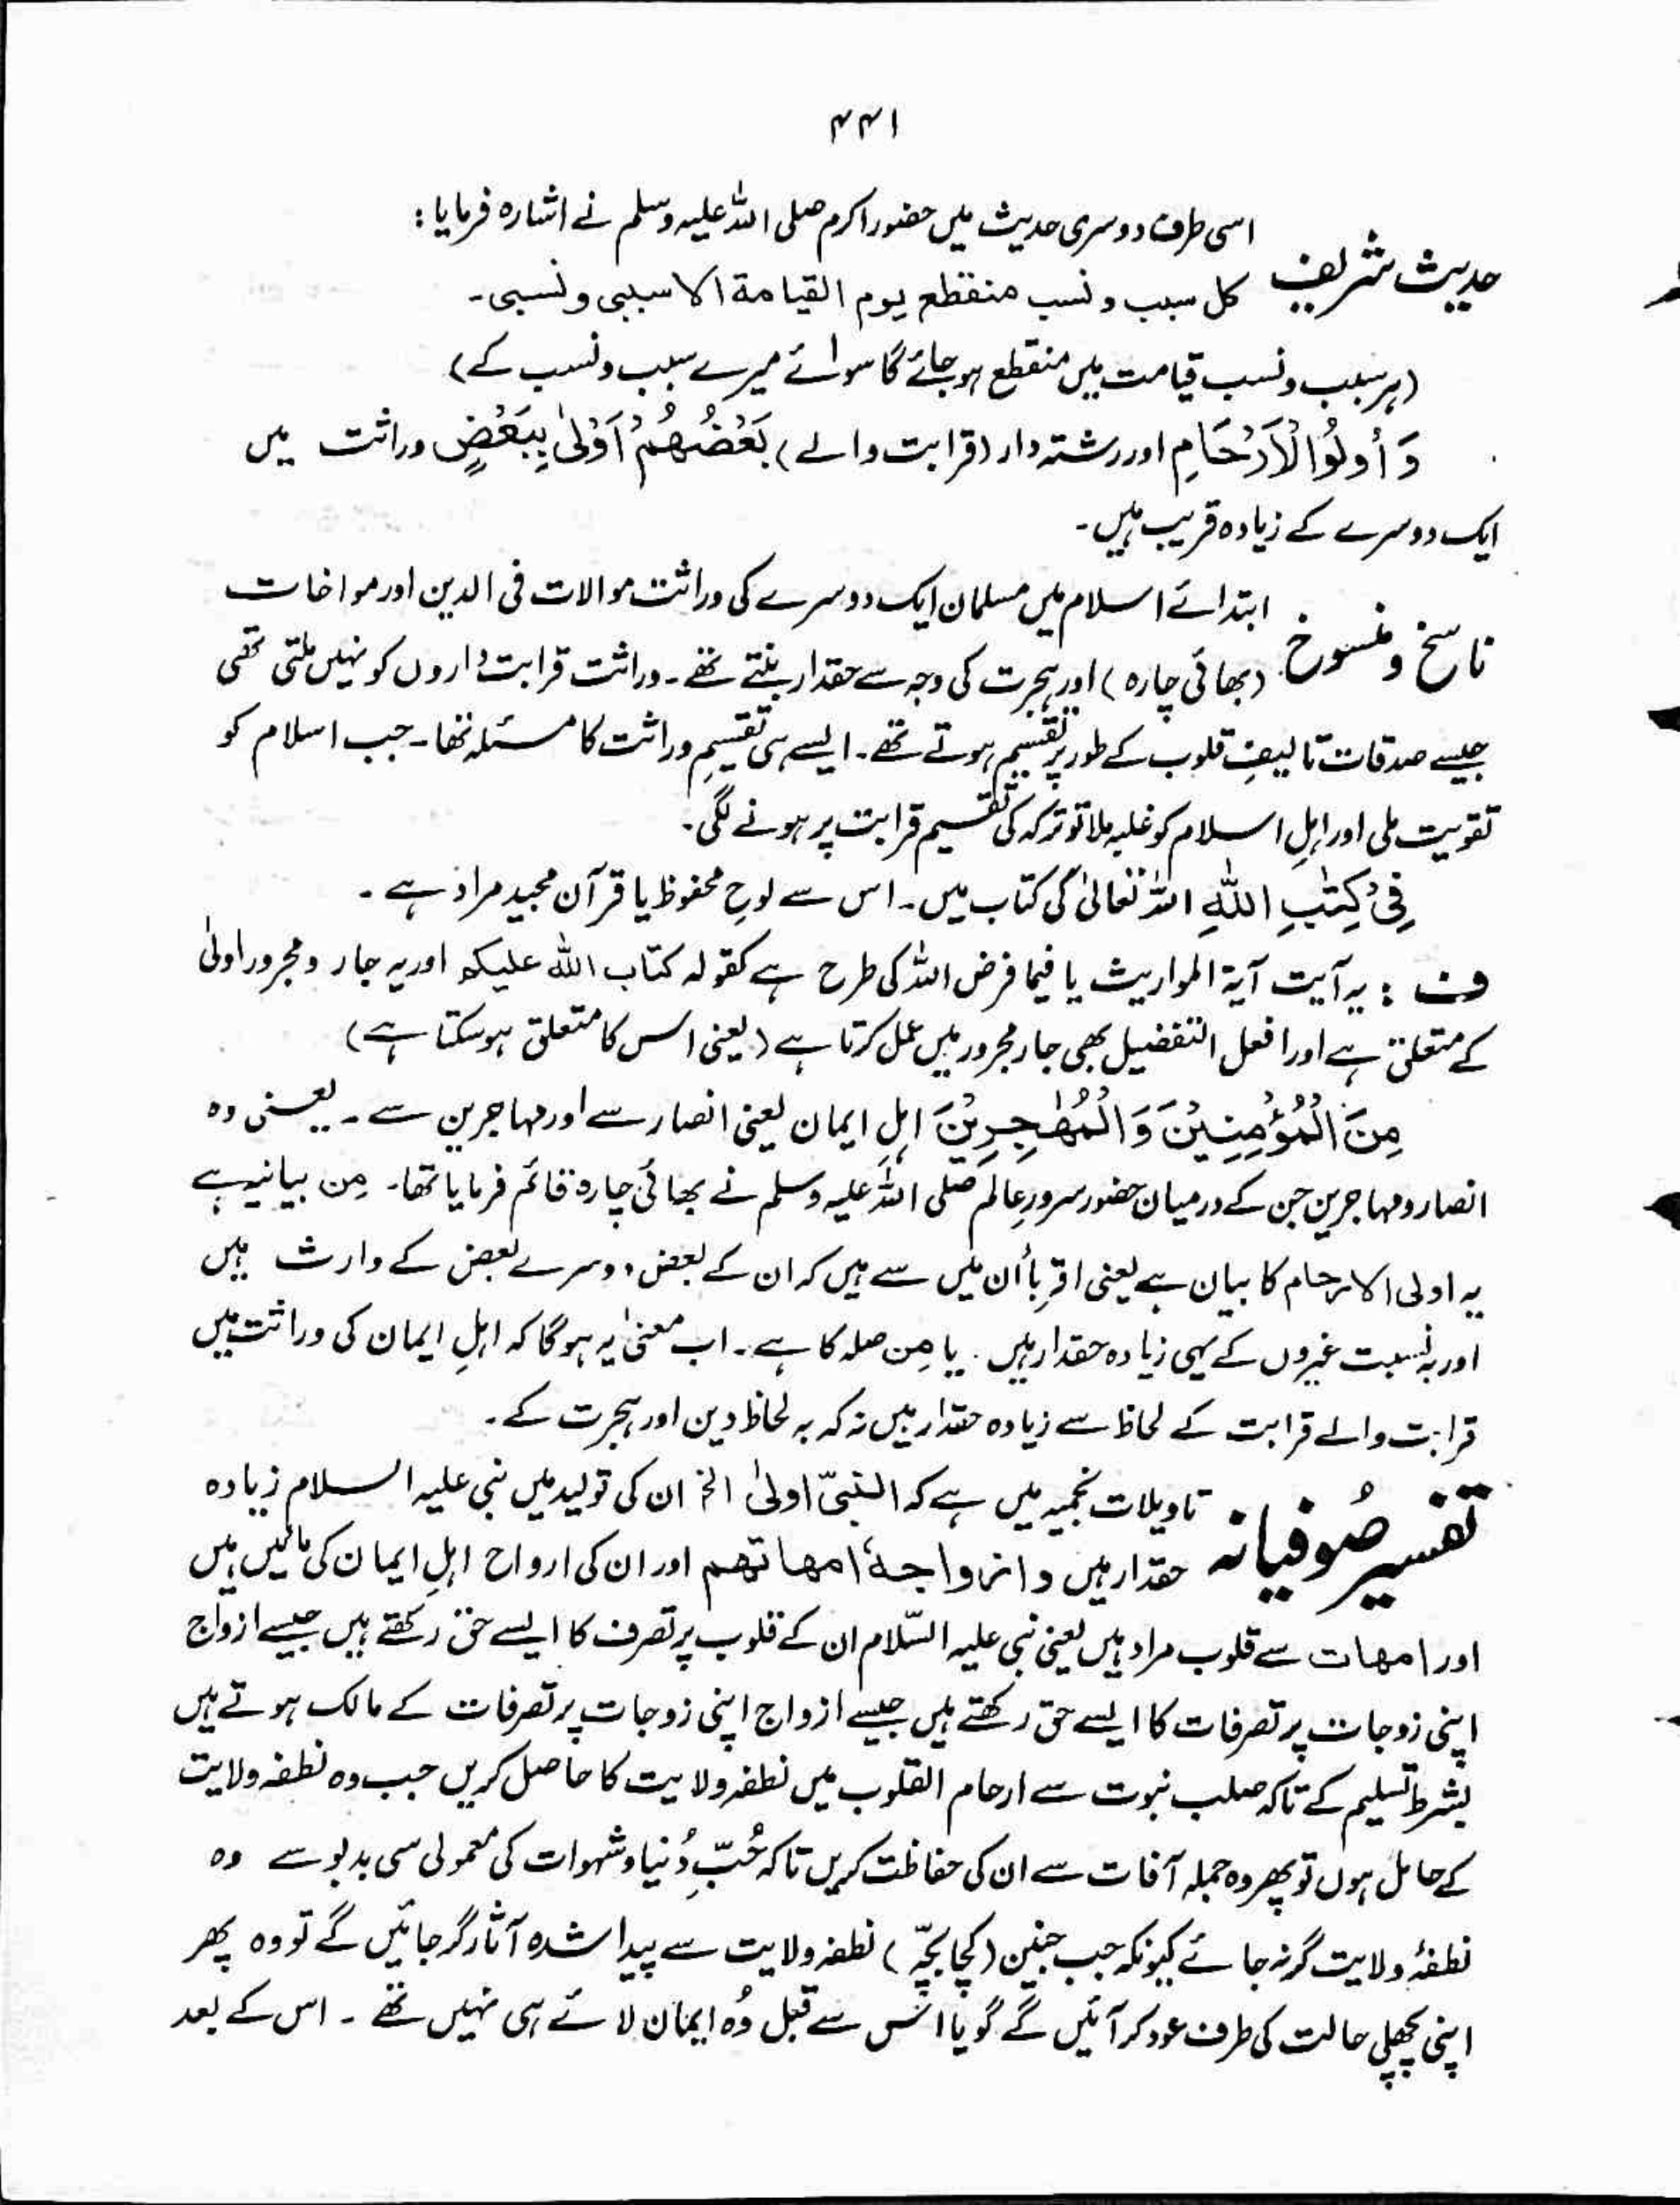 ۴۴۱
اسی طرف دوسری حدیث میں حضور اکرم صلی اللہ علیہ وسلم نے اشارہ فرمایا:
حدیث شریف
کل سبب و نسب منقطع یوم القیامة الا سببی و نسبی۔
(ہر سبب و نسب قیامت میں منقطع ہو جائے گا سوائے میرے سبب و نسب کے)
وَ أُولُوا الْاَرْحَامِ اور رشتہ دار (قرابت والے) بَعْضُهُمْ اَوْلٰی بِبَعْضٍ وراثت میں
ایک دوسرے کے زیادہ قریب ہیں۔
ابتدائے اسلام میں مسلمان ایک دوسرے کی وراثت موالات فی الدین اور مواخات
ناسخ و منسوخ
(بھائی چارہ) اور ہجرت کی وجہ سے حقدار بنتے تھے۔ وراثت قرابت داروں کو نہیں ملتی تھی
جیسے صدقات تالیفِ قلوب کے طور پر تقسیم ہوتے تھے۔ ایسے ہی تقسیمِ وراثت کا مسئلہ تھا۔ جب اسلام کو
تقویت ملی اور اہلِ اسلام کو غلبہ ملا تو ترکہ کی تقسیم قرابت پر ہونے لگی۔
فِیْ کِتٰبِ اللّٰهِ اللہ تعالیٰ کی کتاب میں۔ اس سے لوحِ محفوظ یا قرآن مجید مراد ہے۔
ف : یہ آیت آیۃ المواریث یا فیما فرض اللہ کی طرح ہے کقولہ کتاب اللّٰہ علیکم اور یہ جار و مجرور اولیٰ
کے متعلق ہے اور افعل التفضیل بھی جار مجرور میں عمل کرتا ہے (یعنی اس کا متعلق ہو سکتا ہے)
مِنَ الْمُؤْمِنِیْنَ وَالْمُهٰجِرِیْنَ اہلِ ایمان یعنی انصار سے اور مہاجرین سے۔ یعنی وہ
انصار و مہاجرین جن کے درمیان حضور سرورِ عالم صلی اللہ علیہ وسلم نے بھائی چارہ قائم فرمایا تھا۔ مِن بیانیہ ہے
یہ اولی الارحام کا بیان ہے یعنی اقرِبأ اُن میں سے ہیں کہ ان کے بعض دوسرے بعض کے وارث ہیں
اور بہ نسبت غیروں کے یہی زیادہ حقدار ہیں۔ یا مِن صلہ کا ہے۔ اب معنیٰ یہ ہوگا کہ اہلِ ایمان کی وراثت میں
قرابت والے قرابت کے لحاظ سے زیادہ حقدار ہیں نہ کہ بہ لحاظ دین اور ہجرت کے۔
تاویلات نجمیہ میں ہے کہ النبیّ اولیٰ الخ ان کی تولید میں نبی علیہ السلام زیادہ
تفسیر صُوفیانہ
حقدار ہیں و ازواجهٗ امهاتهم اور ان کی ارواح اہلِ ایمان کی مائیں ہیں
اور امهات سے قلوب مراد ہیں یعنی نبی علیہ السّلام ان کے قلوب پر تصرف کا ایسے حق رکھتے ہیں جیسے ازواج
اپنی زوجات پر تصرفات کا ایسے حق رکھتے ہیں جیسے ازواج اپنی زوجات پر تصرفات کے مالک ہوتے ہیں
بشرط تسلیم کے تاکہ صلب نبوت سے ارحام القلوب میں نطفہ ولایت کا حاصل کریں جب وہ نطفہ ولایت
کے حامل ہوں تو پھر وہ جملہ آفات سے ان کی حفاظت کریں تاکہ حُبِّ دُنیا و شہوات کی معمولی سی بدبو سے وہ
نطفۂ ولایت گر نہ جائے کیونکہ جب جنین (کچا بچّہ) نطفہ ولایت سے پیدا شدہ آثار گر جائیں گے تو وہ پھر
اپنی پچھلی حالت کی طرف عود کر آئیں گے گویا اس سے قبل وُہ ایمان لائے ہی نہیں تھے۔ اس کے بعد